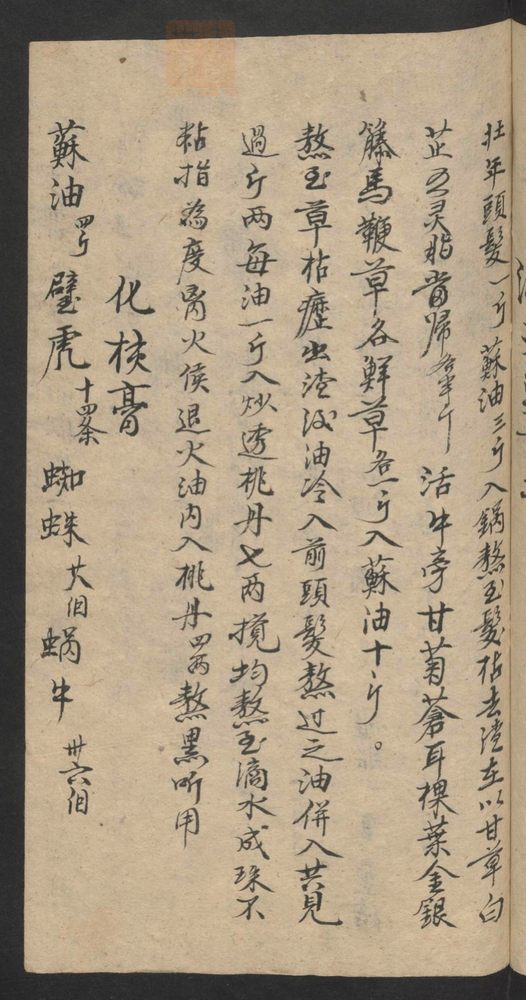 壮年頭髮一斤蘇油三斤入鍋熬至髮枯去渣在以甘草白
芷五灵脂當歸各半斤 活牛旁甘菊蒼耳棵葉金銀
籐馬鞭草各鮮草各一斤入蘇油十斤。
熬至草枯瀝出渣汲油冷入前頭髮熬过之油併入共見
過斤两每油一斤入炒透桃丹七两攪均熬至滴水成珠不
粘指為度离火侯退火油内入桃丹四两熬黑听用
化核膏
蘇油四斤 璧虎十四条 蜘蛛廿八個 蝸牛卅六個